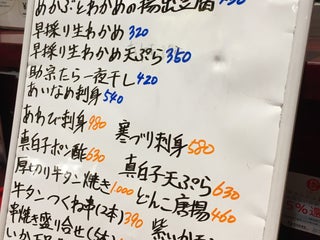 めかぶとわかめの揚出豆腐
早採り生わかめ 320
早採り生わかめ天ぷら 350
助宗たら一夜干し 420
あいなめ刺身 540
あわび刺身 980 寒ブリ刺身 580
真白子ポン酢 630 真白子天ぷら 630
厚切り牛タン焼き 1000 どんこ唐揚 460
牛タンつくね串(2本) 390
串焼き盛り合せ(5本)